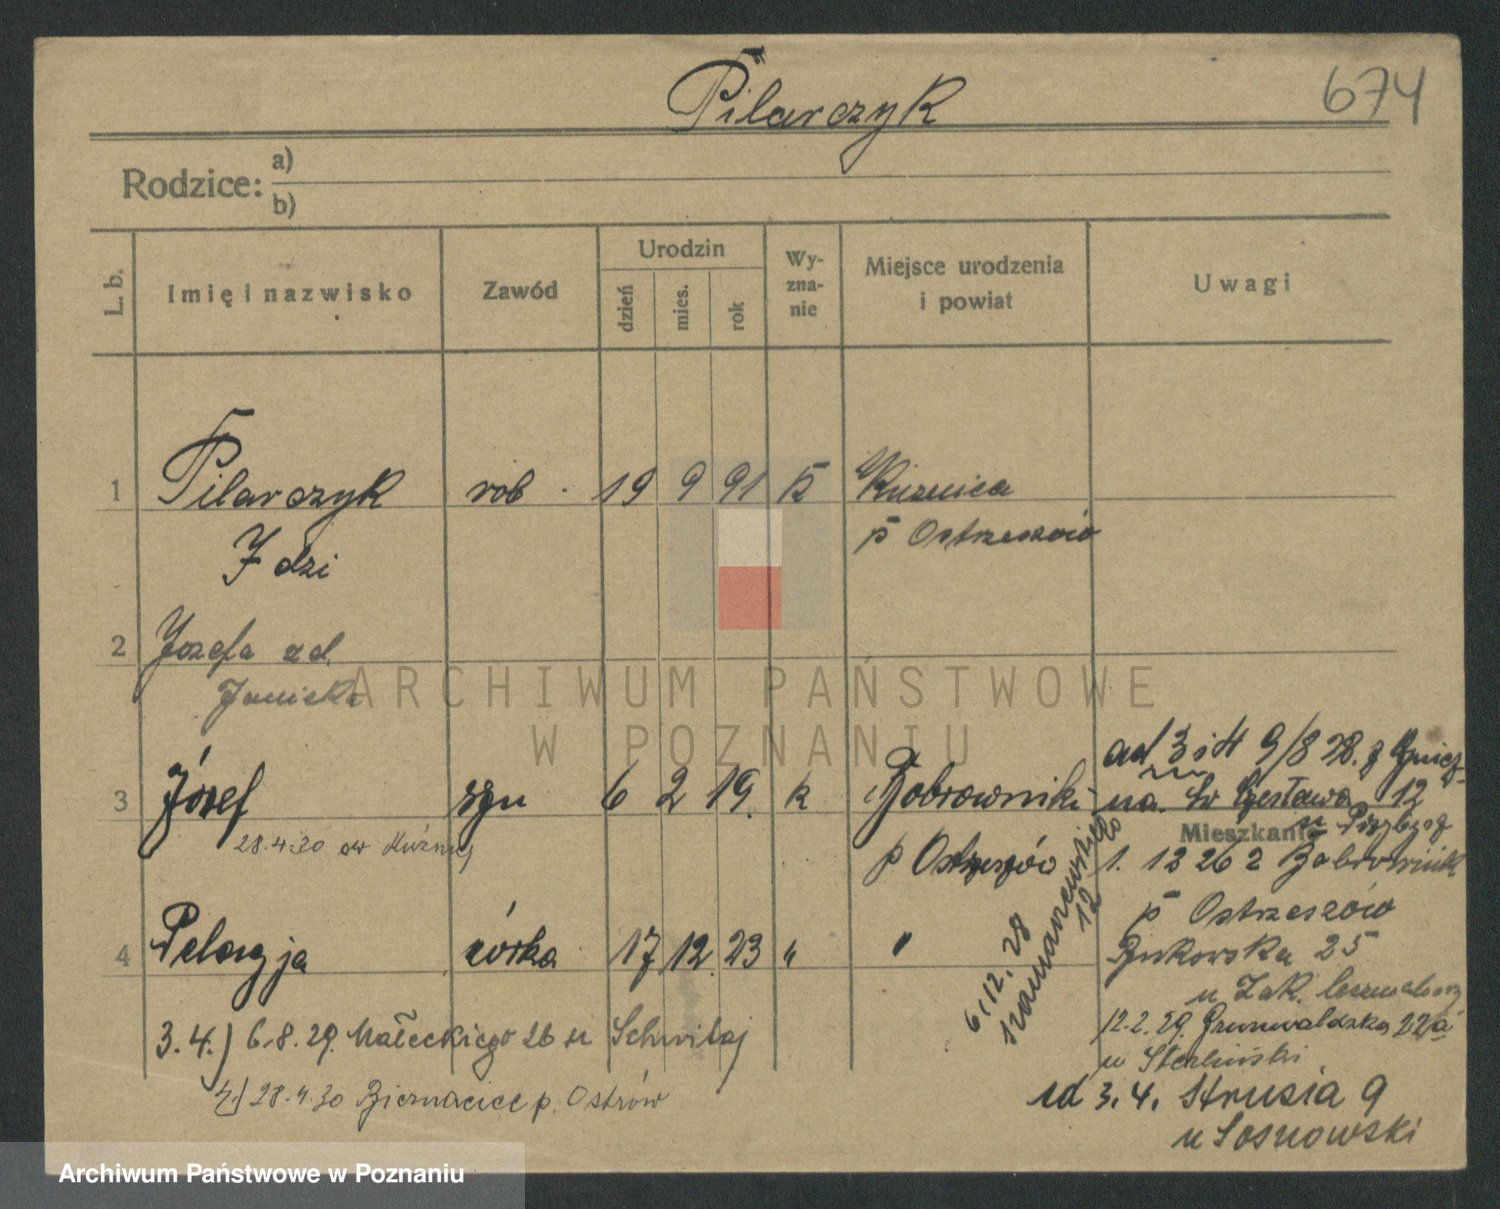 Pilarczyk
674
Rodzice: a)
b)
L. b.
Imię i nazwisko
Zawód
Urodzin
dzień
mies.
rok
Wy-
zna-
nie
Miejsce urodzenia
i powiat
Uwagi
1 Pilarczyk rob. 19 9 91 K Kuznica
Idzi p Ostrzeszów
2 Jozefa zd.
Janicka
3 Józef syn 6 2 19. k Bobrowniki
28.4.30
p Ostrzeszów
4 Pelagja córka 17 12 23 " "
3.4.) 6.8.29. Małeckiego 26 u Schwitaj
4.) 28.4.30 Biernacice p. Ostrów
ad 3 i 4 9/8 28. z
na Św Czesława 12
Mieszkanie
u Przybył
1. 12 26 z Bobrownik
p Ostrzeszów
Bukowska 25
u Zak.
12.2.29. Grunwaldzka 22a
u
ad 3.4. Strusia 9
u Sosnowski
6.12.28
Szamarzewskiego
12
ARCHIWUM PAŃSTWOWE
W POZNANIU
Archiwum Państwowe w Poznaniu